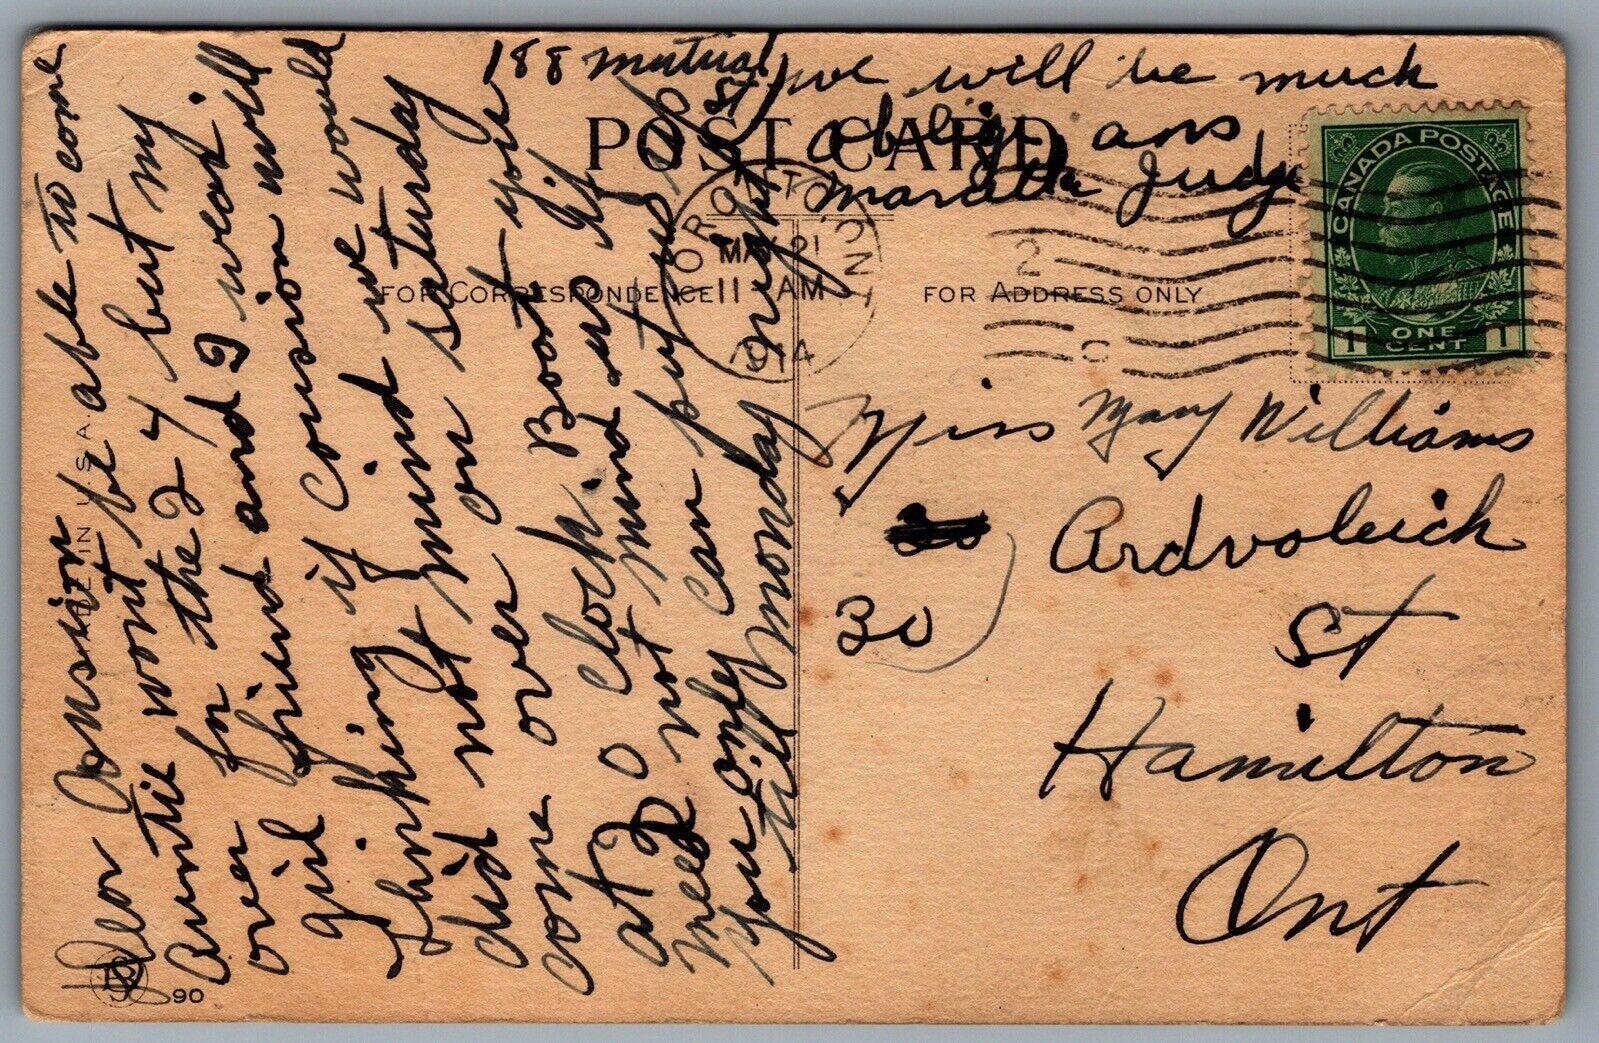 Dear Cousin
Auntie wont be able to come
over for the 24 but my
girl friend and I would
thinking if Cousion will
did not mind if we would
come over on saturday
at 2 O Clock Boat you
need not mind us if
you only can put us up
till monday night
188 mutual St
we will be much
oblige ans
Maretta Judge
POST CARD
FOR CORRESPONDENCE
FOR ADDRESS ONLY
TORONTO ONT
MAY 21
11 AM
1914
2
CANADA POSTAGE
1 ONE CENT 1
Miss Mary Williams
30 Ardvoleich
St
Hamilton
Ont
IN U.S.A.
90